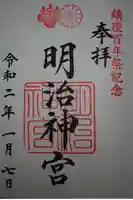 鎮座百年祭記念
奉拝
明治神宮
令和二年一月七日